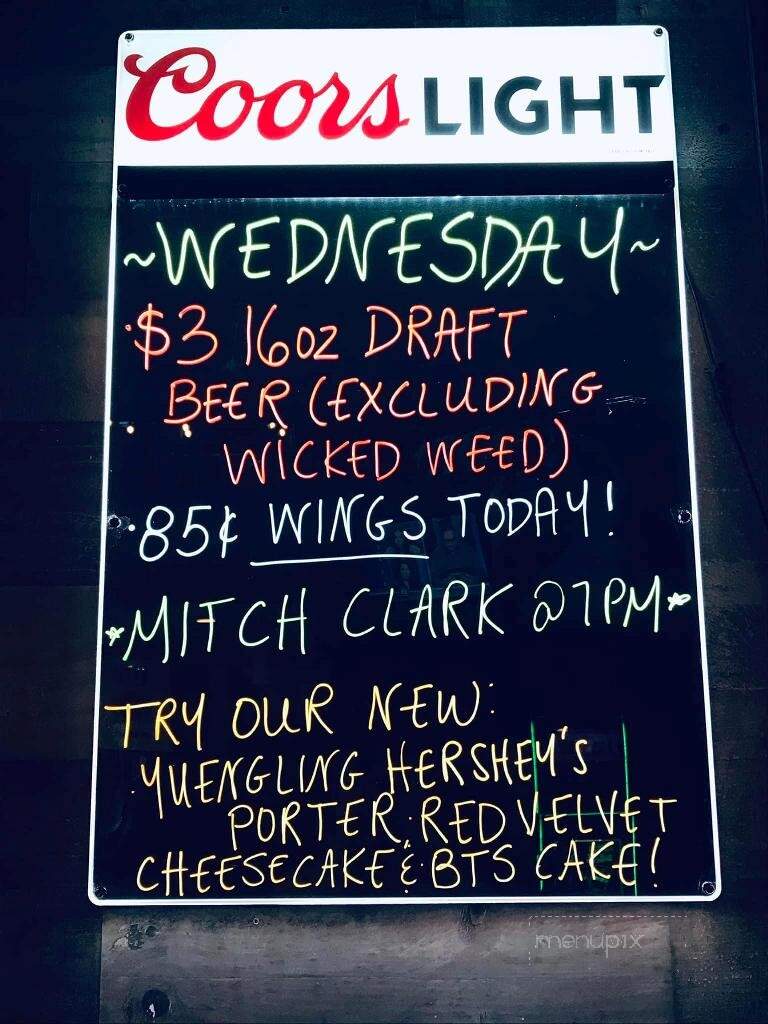 Coors LIGHT
~WEDNESDAY~
·$3 16oz DRAFT
BEER (EXCLUDING
WICKED WEED)
·85¢ WINGS TODAY!
*MITCH CLARK @7PM*
TRY OUR NEW:
·YUENGLING HERSHEY'S
PORTER, RED VELVET
CHEESECAKE & BTS CAKE!
menupix